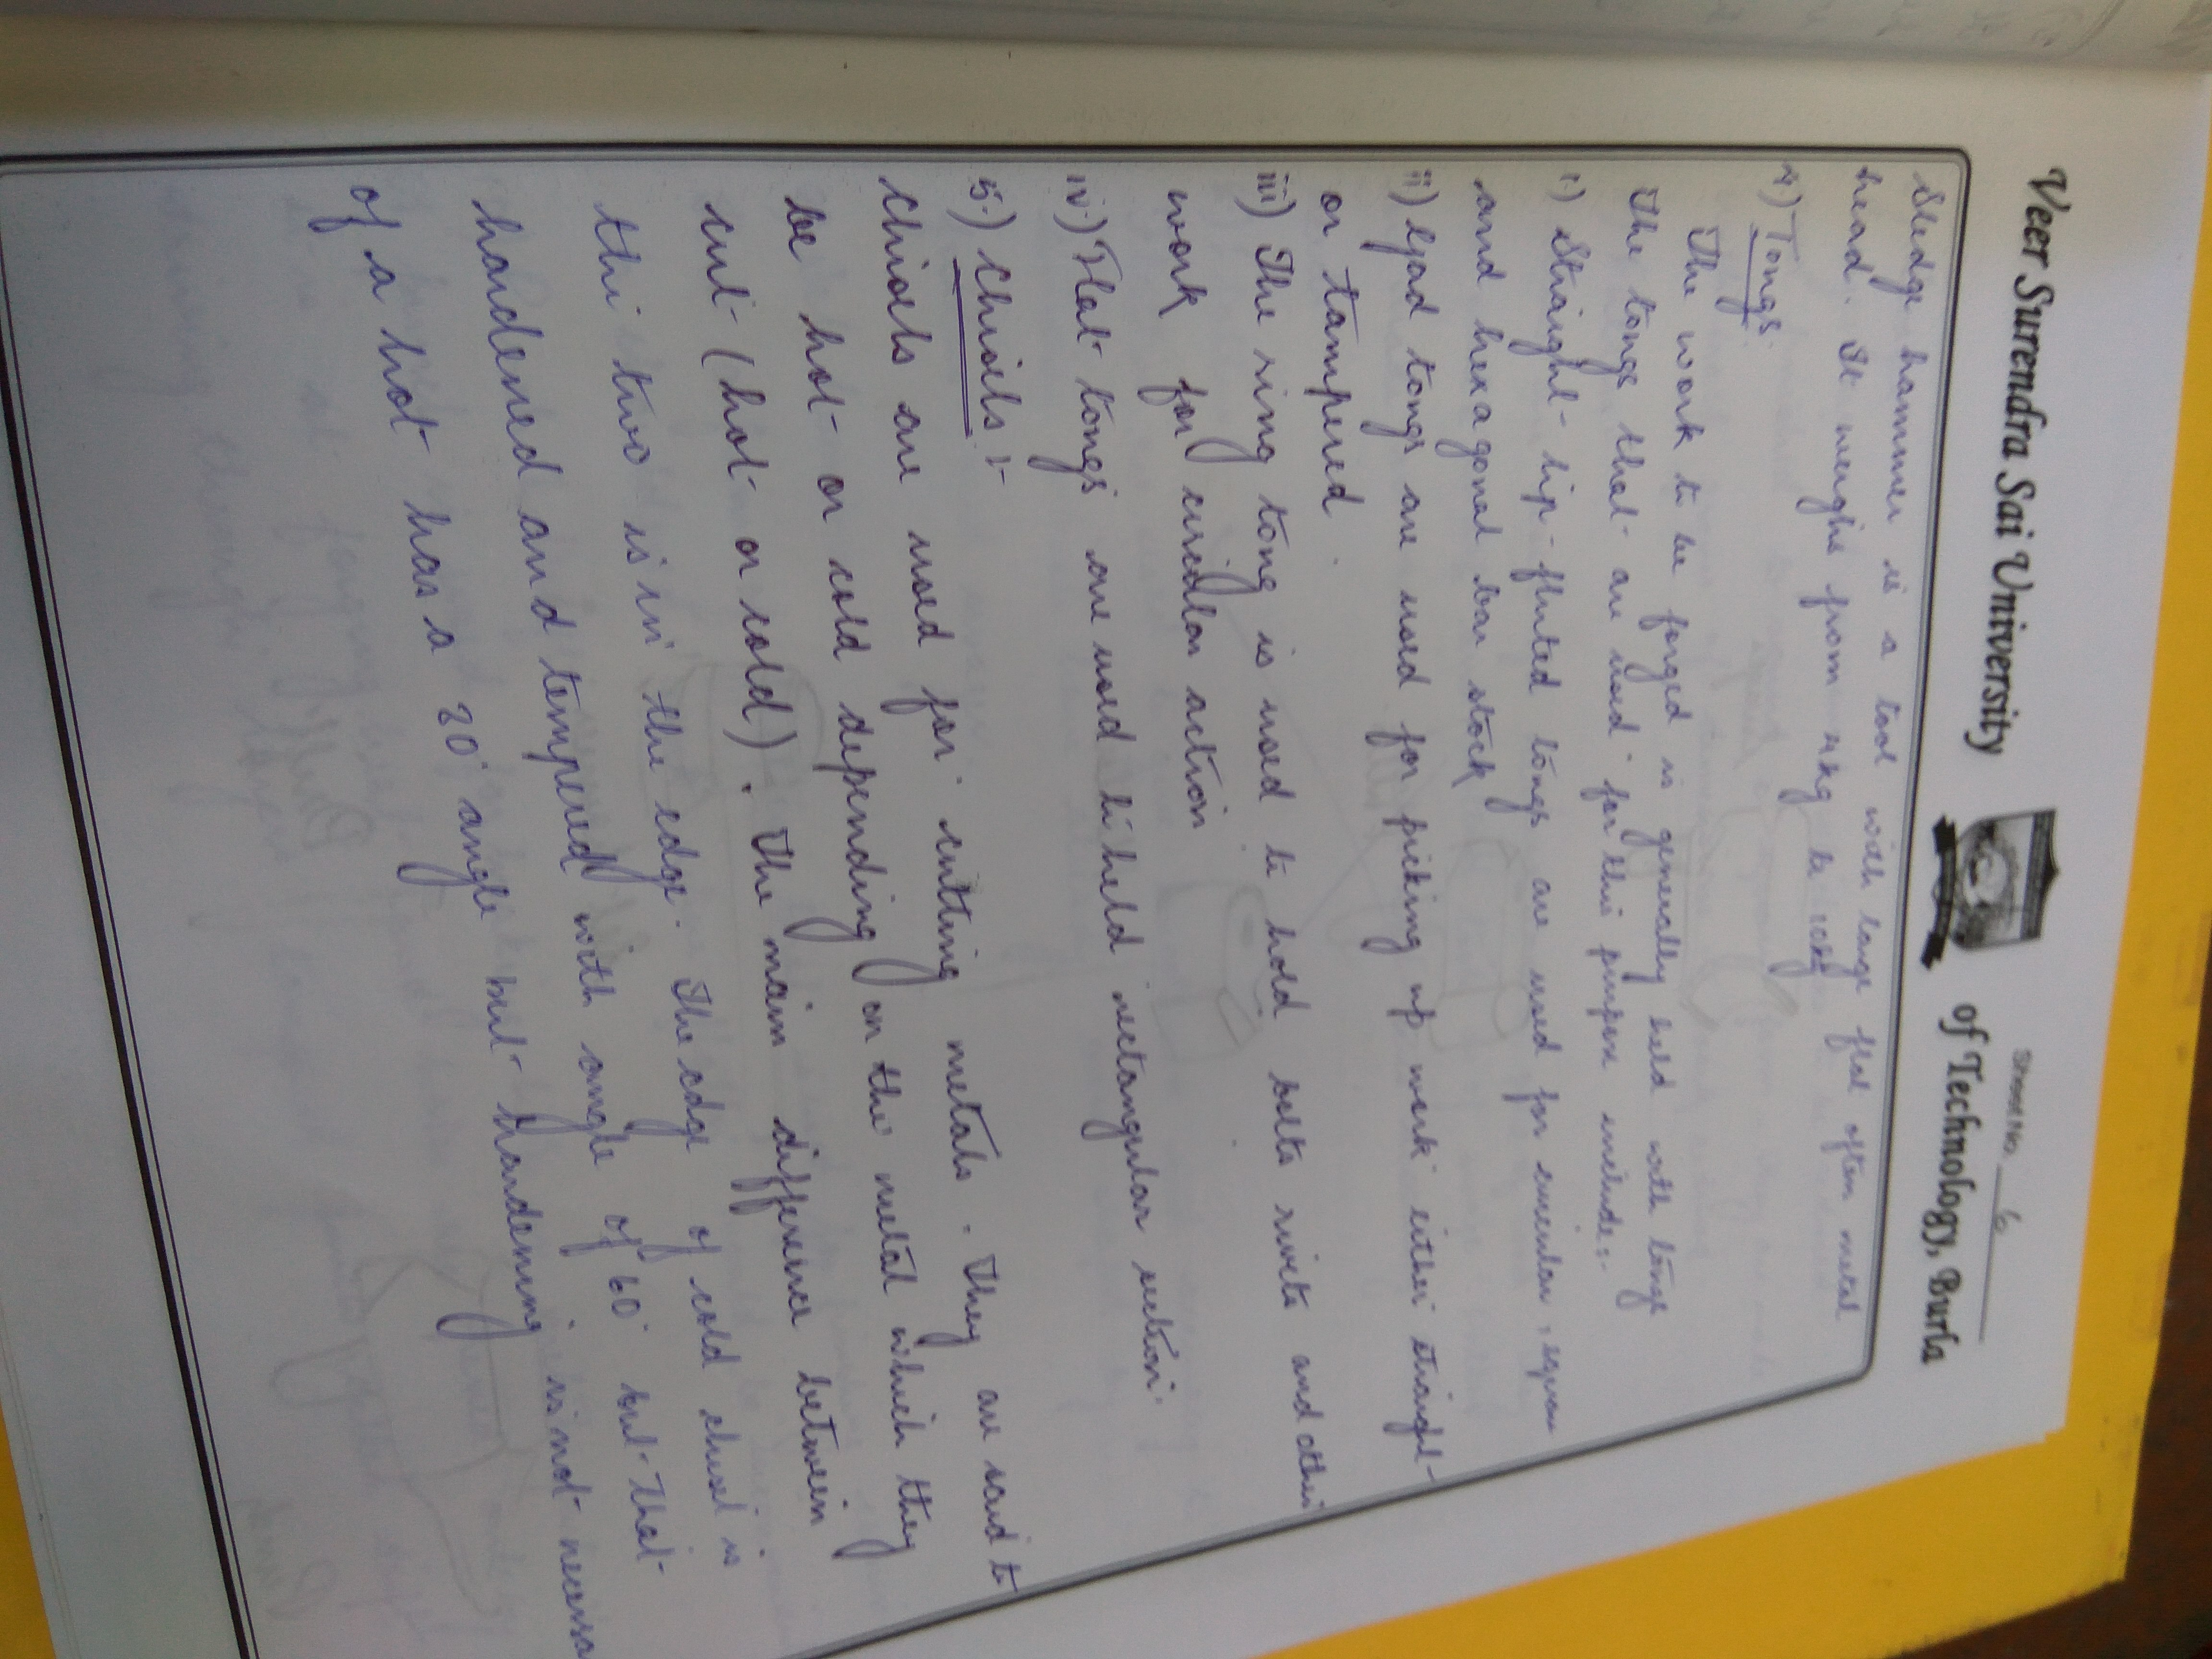 Sheet No. 6
Veer Surendra Sai University of Technology, Burla
Sledge hammer is a tool with large flat often metal
head. It weighs from 4kg to 10kg
4) Tongs.
The work to be forged is generally held with tongs
The tongs that are used for this purpose include:-
i) Straight-lip-fluted tongs are used for circular, square
and hexagonal bar stock
ii) Gad tongs are used for picking up work either straight
or tampered.
iii) The ring tong is used to hold bolts rivets and other
work for circular action
iv.) Flat tongs are used to held rectangular section.
5.) Chisels :-
Chisels are used for cutting metals. They are said to
be hot or cold depending on the metal which they
cut (hot or cold). The main difference between
the two is in the edge. The edge of cold chisel is
hardened and tempered with angle of 60° but that
of a hot has a 20° angle but hardening is not necessa